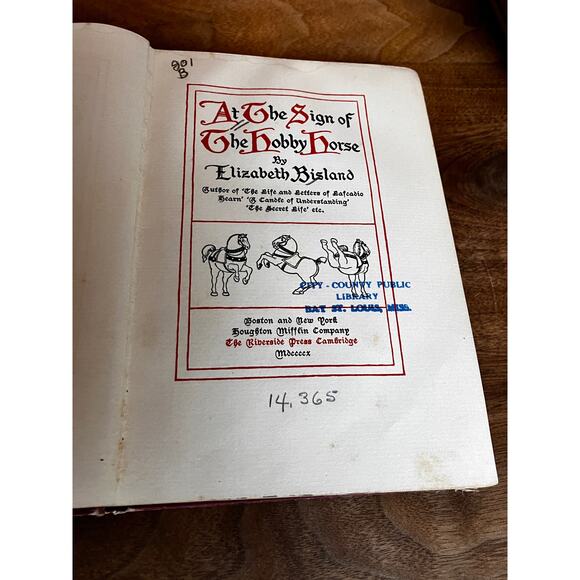 801
B
At The Sign of
The Hobby Horse
By
Elizabeth Bisland
Author of 'The Life and Letters of Lafcadio
Hearn' 'A Candle of Understanding'
'The Secret Life' etc.
CITY - COUNTY PUBLIC
LIBRARY
BAY ST. LOUIS, MISS.
Boston and New York
Houghton Mifflin Company
The Riverside Press Cambridge
Mdccccx
14,365